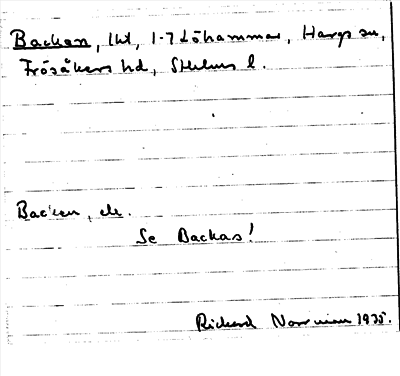 Backen, lht, 1-7 Löhammar, Hargs sn,
Frösåkers hd, Sthlms l.
Backen, de.
Se Backas!
Richard Norrman 1935.